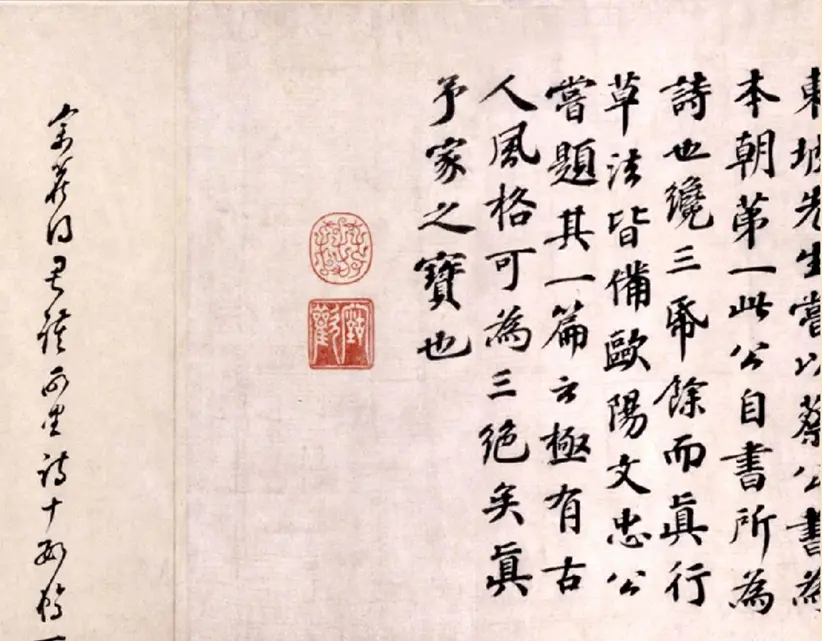 東坡先生嘗以蔡公書為
本朝第一此公自書所為
詩也纔三帋餘而眞行
草法皆備歐陽文忠公
嘗題其一篇云極有古
人風格可為三絕矣眞
予家之寶也
宋蔡君謨
詩十